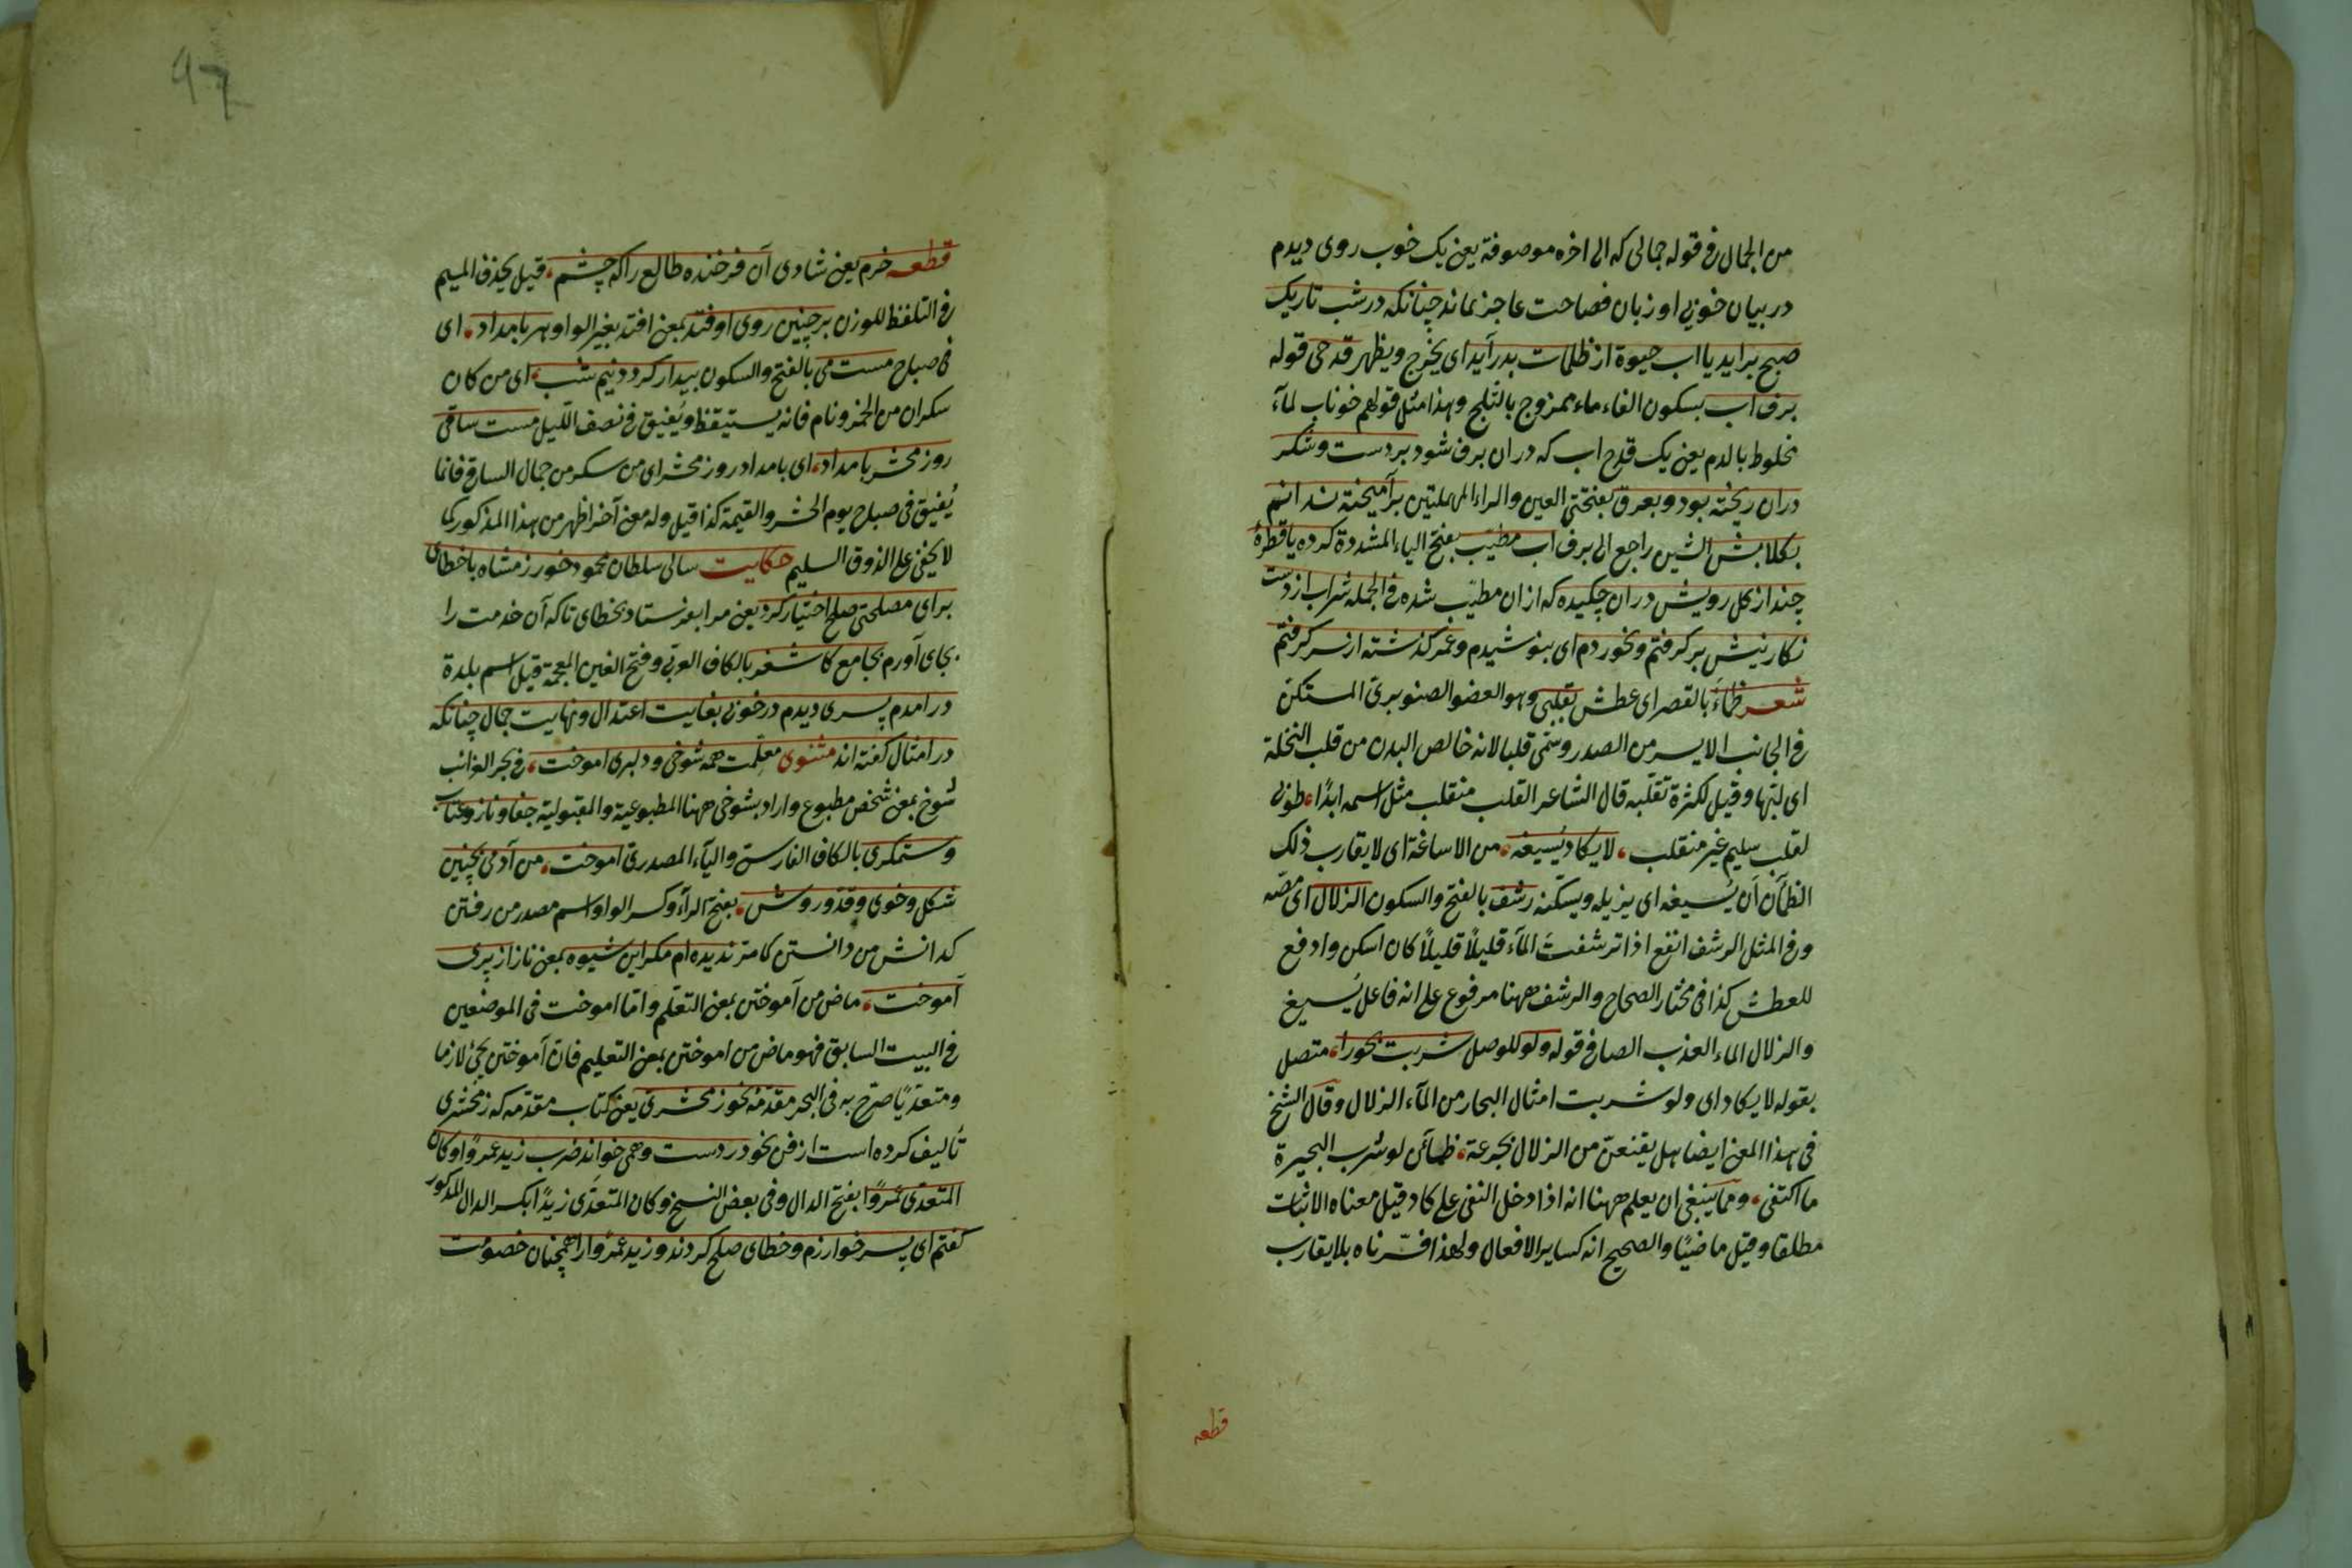 من الجمال فى قوله جمالى كه الى اخره موصوفة يعنى يک خوب روى ديدم
در بيان خوبى او زبان فصاحت عاجز بماند چنانكه در شب تاريک
صبح برايد يا اب حيوة از ظلمات بدر آيد اى يخرج ويظهر قدحى قوله
برف اب بسكون الفاء ماء ممزوج بالثلج وهذا مثل قولهم خوناب لمآء
مخلوط بالدم يعنى يک قدح اب كه در ان برف شود بر دست وشكر
دران ريخته بود وبعرق بفتحتى العين والراء المهملتين برآميخته ندانم
بكلابش الشين راجع الى برف اب مطيّب بفتح الياء المشددة كرده يا قطرۀ
چند از كل رويش دران چكيده كه از ان مطيّب شده فى الجمله شراب از دست
نكارنيش بر كرفتم وبخوردم اى بنوشيدم وعمر كذشته از سر كرفتم
شعر ظمأ بالقصر اى عطش بقلبى وهو العضو الصنوبرىّ المستكن
فى الجانب الايسر من الصدر وسمّى قلبا لانه خالص البدن من قلب النخلة
اى لبّها وقيل لكثرة تقلّبه قال الشاعر القلب منقلب مثل اسمه ابدًا طوبى
لقلب سليم غير منقلب لا يكاد يُسيغه من الاساغة اى لا يقارب ذلک
الظمآن أن يُسيغه اى يزيله ويسكّنه رشف بالفتح والسكون الزلال اى مصّه
وفى المثل الرشف انقع اذا ترشفت المآء قليلًا قليلًا كان اسكن وادفع
للعطش كذا فى مختار الصحاح والرشف ههنا مرفوع على انه فاعل يُسيغ
والزلال الماء العذب الصافى قوله ولو للوصل شربت بحورا متصل
بقوله لا يكاد اى ولو شربت امثال البحار من المآء الزلال وقال الشيخ
فى هذا المعنى ايضا هل يقنعنّ من الزلال بجرعة ظمآن لو شرب البحيرة
ما اكتفى وممّا ينبغى ان يعلم ههنا انه اذا دخل النفى على كاد قيل معناه الاثبات
مطلقا وقيل ماضيًا والصحيح انه كساير الافعال ولهذا فسّرناه بلا يقارب
قطعه
قطعه خرم يعنى شادى آن فرخنده طالع را كه چشم قيل بحذف الميم
فى التلفظ للوزن بر چنين روى اوفتد بمعنى افتد بغير الواو هر بامداد اى
فى صباح مست مى بالفتح والسكون بيدار كردد نيم شب اى من كان
سكران من الخمر ونام فانه يستيقظ ويُفيق فى نصف اللّيل مست ساقى
روز محشر بامداد اى بامداد روز محشر اى من سكر من جمال الساقى فانما
يُفيق فى صباح يوم الحشر والقيمة كذا قيل وله معنى آخر اظهر من هذا المذكور كما
لا يخفى على الذوق السليم حكايت سالى سلطان محمود خوارزمشاه با خطاى
براى مصلحتى صلح اختيار كرد يعنى مرا بفرستاد بخطاى تا كه آن خدمت را
بجاى آورم بجامع كاشغر بالكاف العربى وفتح الغين المعجمة قيل اسم بلدة
درامدم پسرى ديدم در خوبى بغايت اعتدال ونهايت جمال چنانكه
در امثال كفته اند مثنوى معلّمت همه شوخى ودلبرى اموخت فى بحر الغرائب
شوخ بمعنى شخص مطبوع واراد بشوخى ههنا المطبوعية والمقبولية جفا وناز وعتاب
وستمكرى بالكاف الفارسىّ والياء المصدرىّ اموخت من آدمى بچنين
شكل وخوى وقدّ وروش بفتح الرآء وكسر الواو اسم مصدر من رفتن
كدانش من دانستن كامتر نديده ام مكر اين شيوه بمعنى ناز از پرى
آموخت ماض من آموختن بمعنى التعلّم وامّا اموخت فى الموضعين
فى البيت السابق فهو ماض من اموختن بمعنى التعليم فانّ آموختن يجئ لازما
ومتعدّيًا صرّح به فى البحر مقدّمۀ نحو زمخشرى يعنى كتاب مقدّمه كه زمخشرى
تأليف كرده است از فن نحو در دست وهمى خواند ضرب زيد عمرًوا وكان
المتعدّى عمرًوا بفتح الدال وفى بعض النسخ وكان المتعدّى زيدًا بكسر الدال المذكور
كفتم اى پسر خوارزم وخطاى صلح كردند وزيد عمرًوا را همچنان خصومت